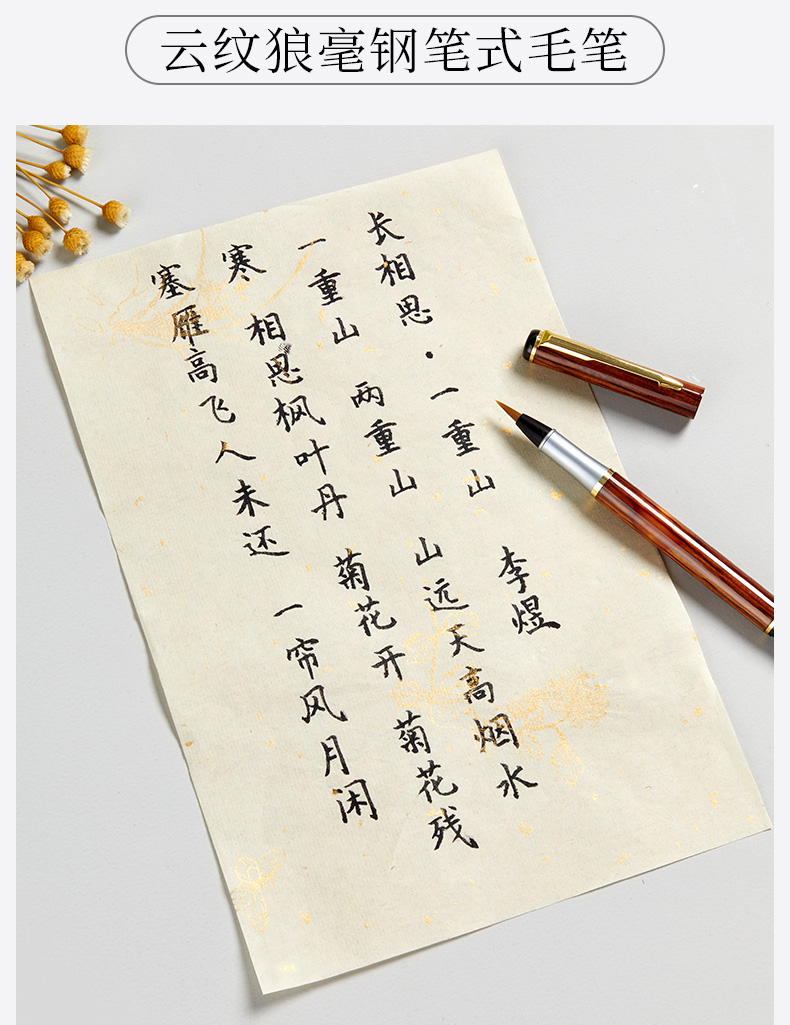 云纹狼毫钢笔式毛笔
长相思·一重山 李煜
一重山 两重山 山远天高烟水
寒 相思枫叶丹 菊花开 菊花残
塞雁高飞人未还 一帘风月闲